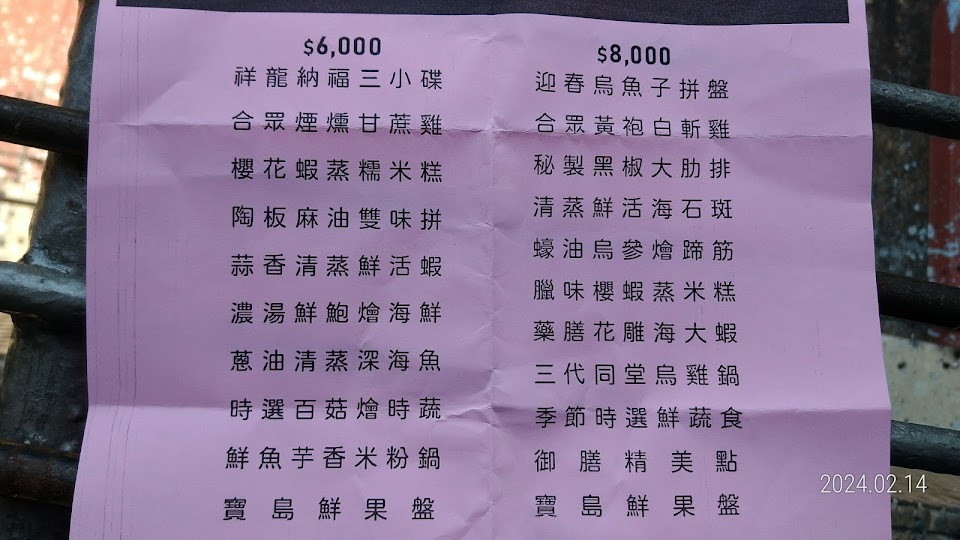 $6,000
祥龍納福三小碟
合眾煙燻甘蔗雞
櫻花蝦蒸糯米糕
陶板麻油雙味拼
蒜香清蒸鮮活蝦
濃湯鮮鮑燴海鮮
蔥油清蒸深海魚
時選百菇燴時蔬
鮮魚芋香米粉鍋
寶島鮮果盤
$8,000
迎春烏魚子拼盤
合眾黃袍白斬雞
秘製黑椒大肋排
清蒸鮮活海石斑
蠔油烏參燴蹄筋
臘味櫻蝦蒸米糕
藥膳花雕海大蝦
三代同堂烏雞鍋
季節時選鮮蔬食
御膳精美點
寶島鮮果盤
2024.02.14